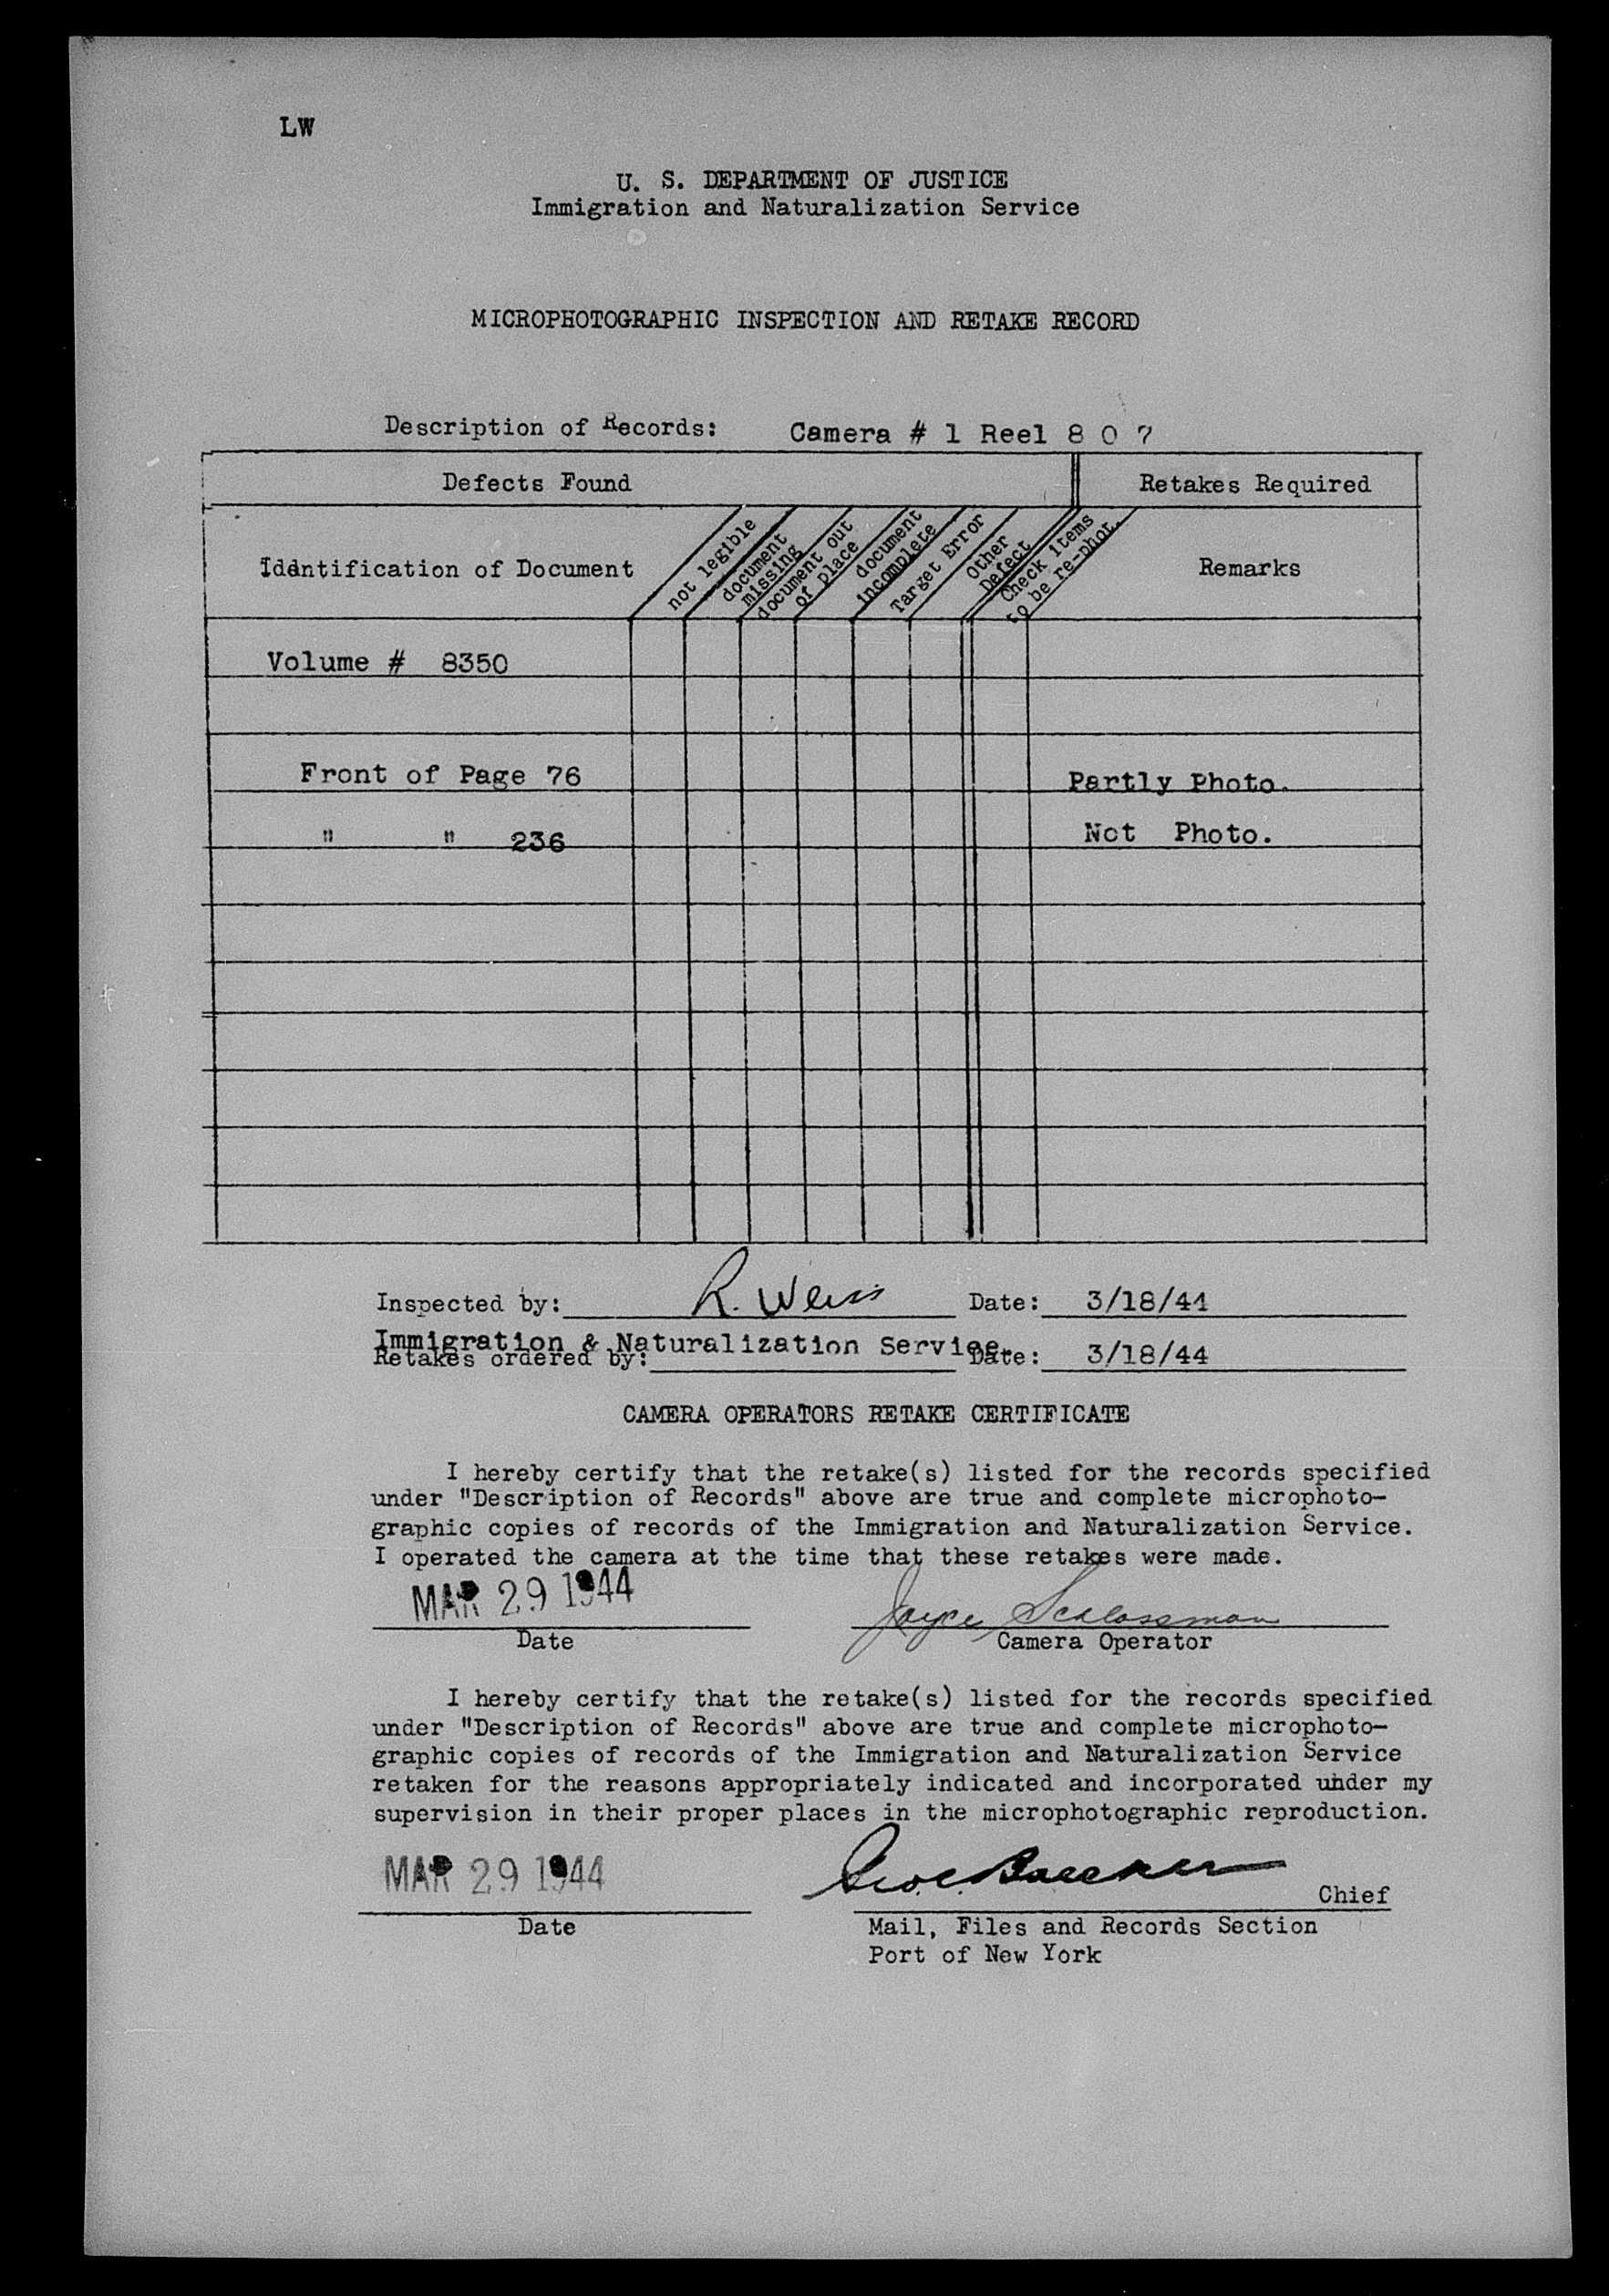 LW
U. S. DEPARTMENT OF JUSTICE
Immigration and Naturalization Service
MICROPHOTOGRAPHIC INSPECTION AND RETAKE RECORD
Description of Records: Camera # 1 Reel 8 0 7
Defects Found Retakes Required
Identification of Document
not legible
document missing
document out of place
document incomplete
Target Error
Other Defect
Check items to be re-phot.
Remarks
Volume # 8350
Front of Page 76 Partly Photo.
" " 236 Not Photo.
Inspected by: R. Weiss Date: 3/18/44
Immigration & Naturalization Service.
Retakes ordered by: Date: 3/18/44
CAMERA OPERATORS RETAKE CERTIFICATE
I hereby certify that the retake(s) listed for the records specified
under "Description of Records" above are true and complete microphoto-
graphic copies of records of the Immigration and Naturalization Service.
I operated the camera at the time that these retakes were made.
MAR 29 1944 Joyce Schlossman
Date Camera Operator
I hereby certify that the retake(s) listed for the records specified
under "Description of Records" above are true and complete microphoto-
graphic copies of records of the Immigration and Naturalization Service
retaken for the reasons appropriately indicated and incorporated under my
supervision in their proper places in the microphotographic reproduction.
MAR 29 1944
Chief
Date Mail, Files and Records Section
Port of New York